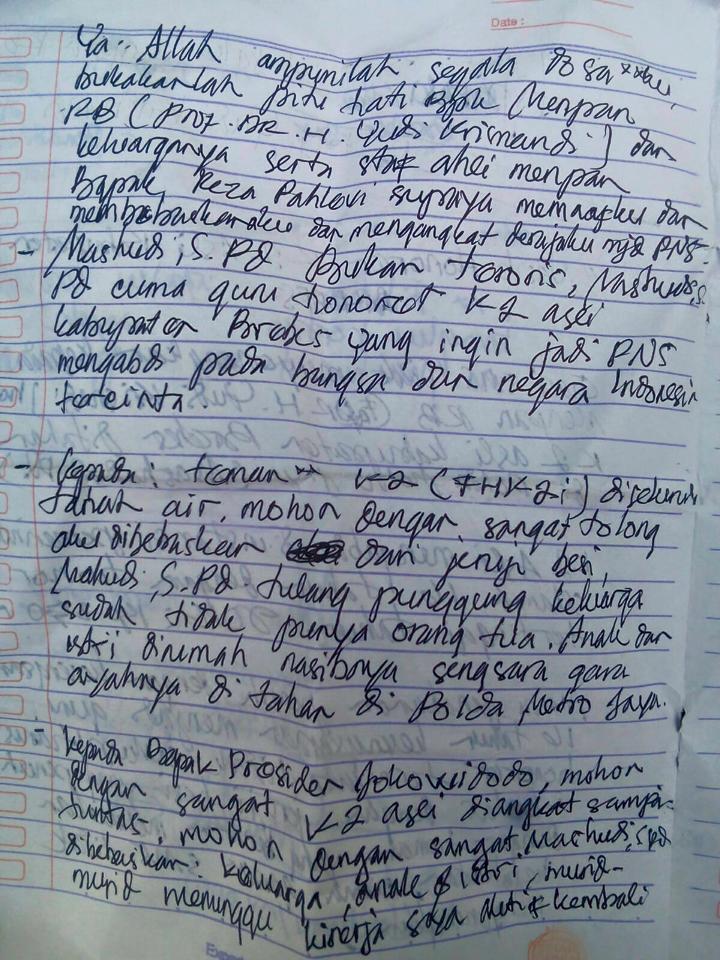 Date :
Ya.. Allah ampunilah segala dosa"ku,
bukakanlah pintu hati Bpk (Menpan
RB (Prof. DR. H. Yudi Krisnandi) dan
keluarganya serta staf ahli menpan
Bapak Reza Pahlevi supaya memaafku dan
membebaskanku dan mengangkat derajatku mjd PNS.
- Mashudi, S.Pd Bukan teroris, Mashudi, S.
Pd cuma guru honorer K2 asli
kabupaten Brebes yang ingin jadi PNS
mengabdi pada bangsa dan negara Indonesia
tercinta.
- Kepada : teman" K2 (FHK2i) diseluruh
tanah air, mohon dengan sangat tolong
aku dibebaskan dari jeruji besi,
Mahudi, S.Pd tulang punggung keluarga
sudah tidak punya orang tua. Anak dan
istri dirumah nasibnya sengsara gara
ayahnya di tahan di Polda Metro Jaya.
- Kepada Bapak Presiden Jokowidodo, mohon
dengan sangat K2 asli diangkat sampai
tuntas, mohon dengan sangat Mashudi, Spd
dibebaskan. keluarga, anak & istri, murid-
murid menunggu kinerja saya aktif kembali